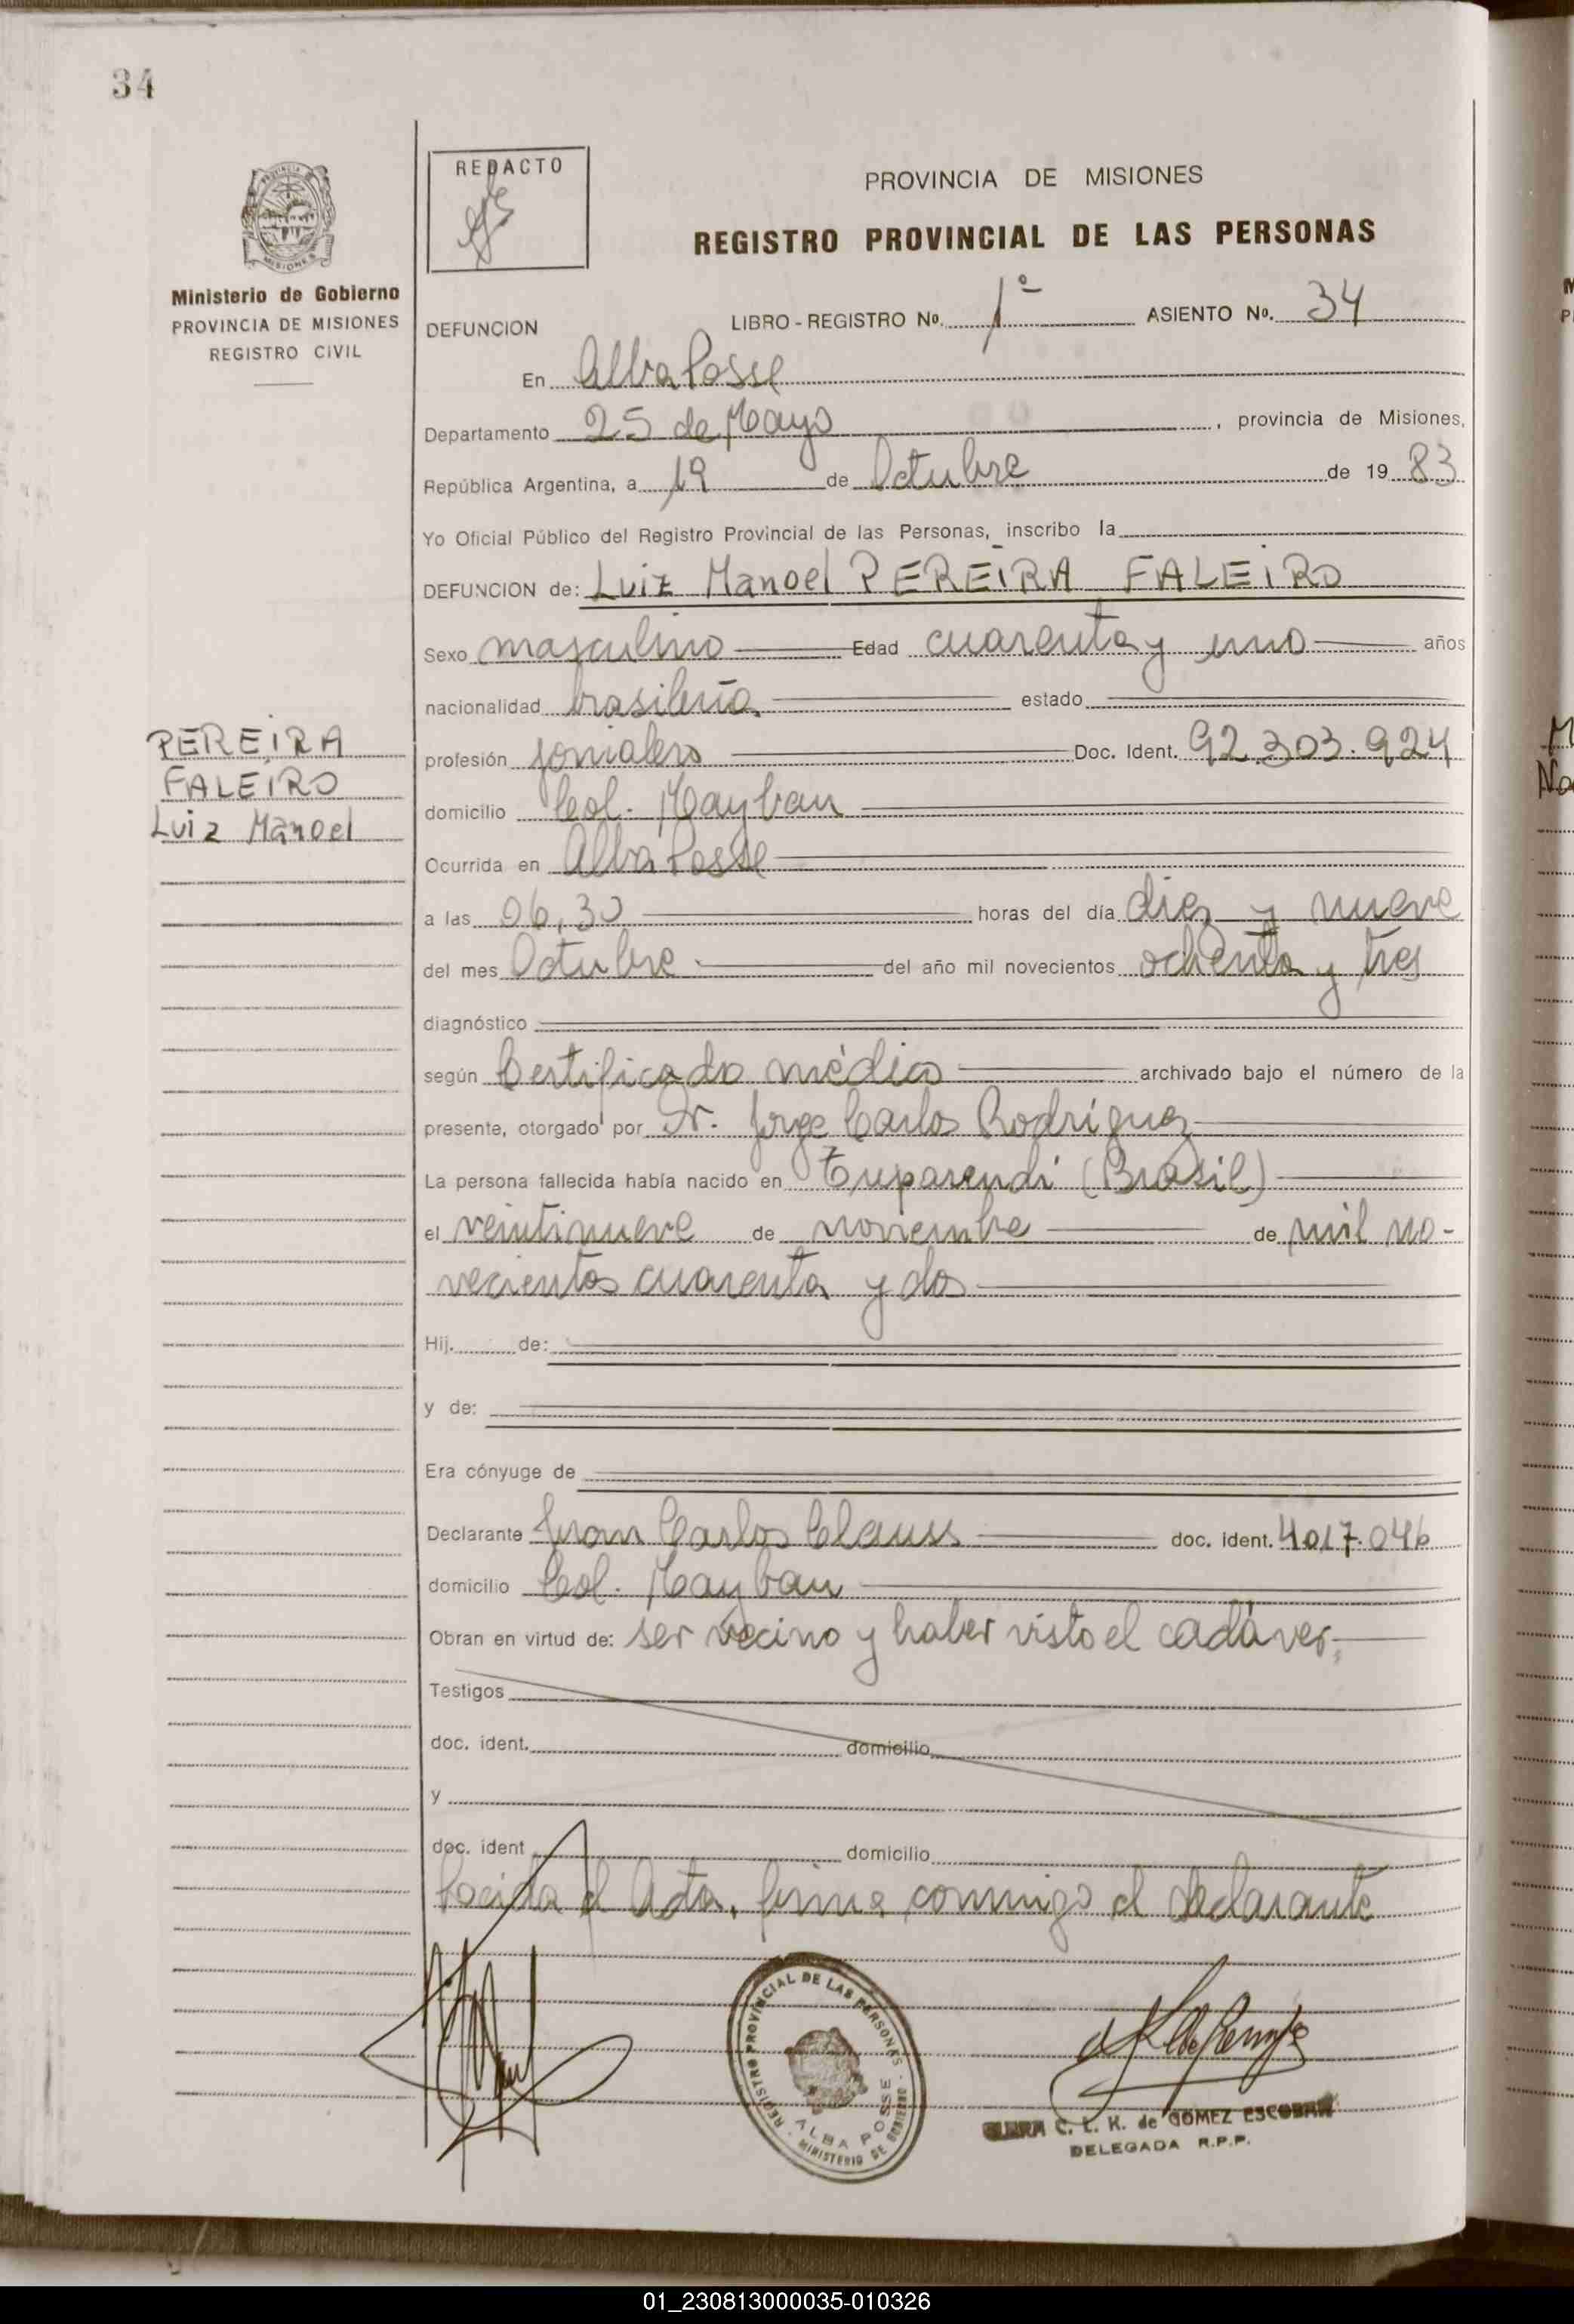 34
REDACTO
PROVINCIA DE MISIONES
REGISTRO PROVINCIAL DE LAS PERSONAS
MISIONES
Ministerio de Gobierno
PROVINCIA DE MISIONES
REGISTRO CIVIL
DEFUNCION LIBRO - REGISTRO Nº. 1º ASIENTO Nº. 34
En Alba Posse
Departamento 25 de Mayo, provincia de Misiones,
República Argentina, a 19 de Octubre de 19 83
Yo Oficial Público del Registro Provincial de las Personas, inscribo la
DEFUNCION de: Luiz Manoel PEREIRA FALEIRO
Sexo masculino Edad cuarenta y uno años
nacionalidad brasileña estado
PEREIRA
FALEIRO
Luiz Manoel
profesión jornalero Doc. Ident. 92.303.924
domicilio Col. Mayban
Ocurrida en Alba Posse
a las 06,30 horas del día diez y nueve
del mes Octubre del año mil novecientos ochenta y tres
diagnóstico
según Certificado médico archivado bajo el número de la
presente, otorgado por Dr. Jorge Carlos Rodriguez
La persona fallecida había nacido en Tuparendi (Brasil)
el veintinueve de noviembre de mil no-
vecientos cuarenta y dos
Hij. de:
y de:
Era cónyuge de
Declarante Juan Carlos Clauss doc. ident. 4.017.046
domicilio Col. Mayban
Obran en virtud de: ser vecino y haber visto el cadáver.
Testigos
doc. ident. domicilio
y
doc. ident domicilio
Leida el Acta, firma conmigo el declarante
REGISTRO PROVINCIAL DE LAS PERSONAS
ALBA POSSE
MINISTERIO DE GOBIERNO
C. L. K. de GOMEZ ESCOBAR
DELEGADA R.P.P.
01_230813000035-010326